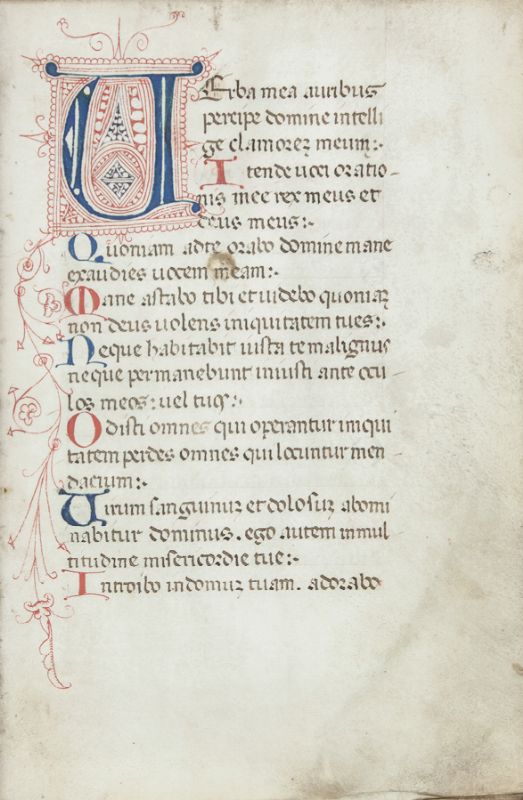 UErba mea auribus
percipe domine intelli
ge clamorez meum:.
Itende uoci oratio-
nis mee rex meus et
deus meus:.
Quoniam adte orabo domine mane
exaudies uocem meam:.
Mane astabo tibi et uidebo quoniaz
non deus uolens iniquitatem tues:.
Neque habitabit iusta te malignus
neque permanebunt iniusti ante ocu
los meos: uel tuos:.
Odisti omnes qui operantur iniqui
tatem perdes omnes qui locuntur men
dacium:.
Uirum sanguinuz et dolosuz abomi
nabitur dominus. ego autem in mul
titudine misericordie tue:.
Introibo in domuz tuam. adorabo